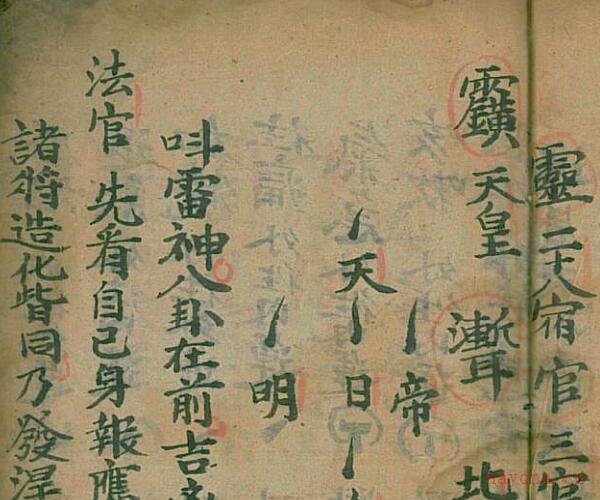 靈二十八宿官三官
天皇
帝
天日
明
呌雷神八卦在前吉
法官先看自己身報應
諸將造化皆同乃發